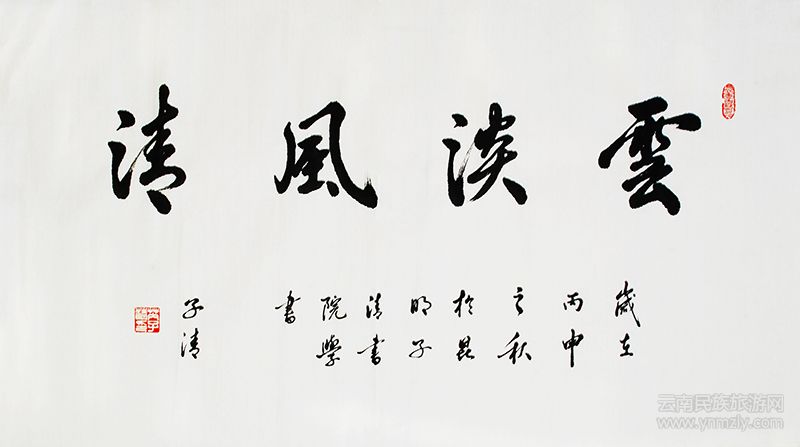 雲淡風清
歲在
丙申
之秋
於昆
明子
清書
院學
書
子清
云南民族旅游网
www.ynmzly.com